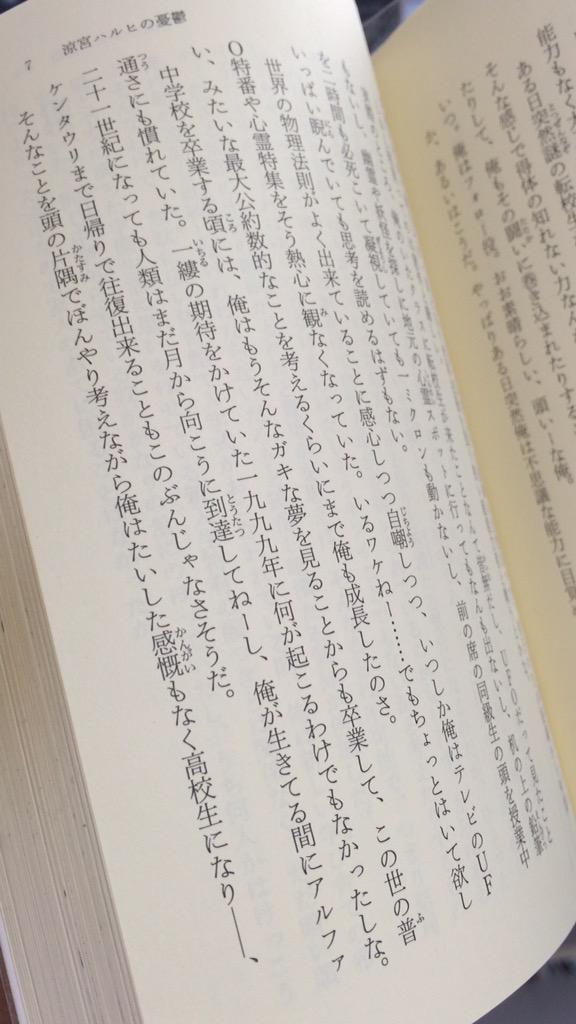 能力もなく
ある日突然謎の転校生
そんな感じで得体の知れない力なん
たりして、俺もその闘いに巻き込まれたりする
いつ。俺はフォロー役。おお素晴らしい、頭いーな俺。
か、あるいはこうだ。やっぱりある日突然俺は不思議な能力に目覚
涼宮ハルヒの憂鬱
7
クラスに転校生が来たことなんて皆無だし、UFOだって見たこと
もないし、幽霊や妖怪を探しに地元の心霊スポットに行ってもなんも出ないし、机の上の鉛筆
を二時間も必死こいて凝視していても一ミクロンも動かないし、前の席の同級生の頭を授業中
いっぱい睨んでいても思考を読めるはずもない。
世界の物理法則がよく出来ていることに感心しつつ自嘲しつつ、いつしか俺はテレビのUF
O特番や心霊特集をそう熱心に観なくなっていた。いるワケねー……でもちょっとはいて欲し
い、みたいな最大公約数的なことを考えるくらいにまで俺も成長したのさ。
中学校を卒業する頃には、俺はもうそんなガキな夢を見ることからも卒業して、この世の普
通さにも慣れていた。一縷の期待をかけていた一九九九年に何が起こるわけでもなかったしな。
二十一世紀になっても人類はまだ月から向こうに到達してねーし、俺が生きてる間にアルファ
ケンタウリまで日帰りで往復出来ることもこのぶんじゃなさそうだ。
そんなことを頭の片隅でぼんやり考えながら俺はたいした感慨もなく高校生になり――、